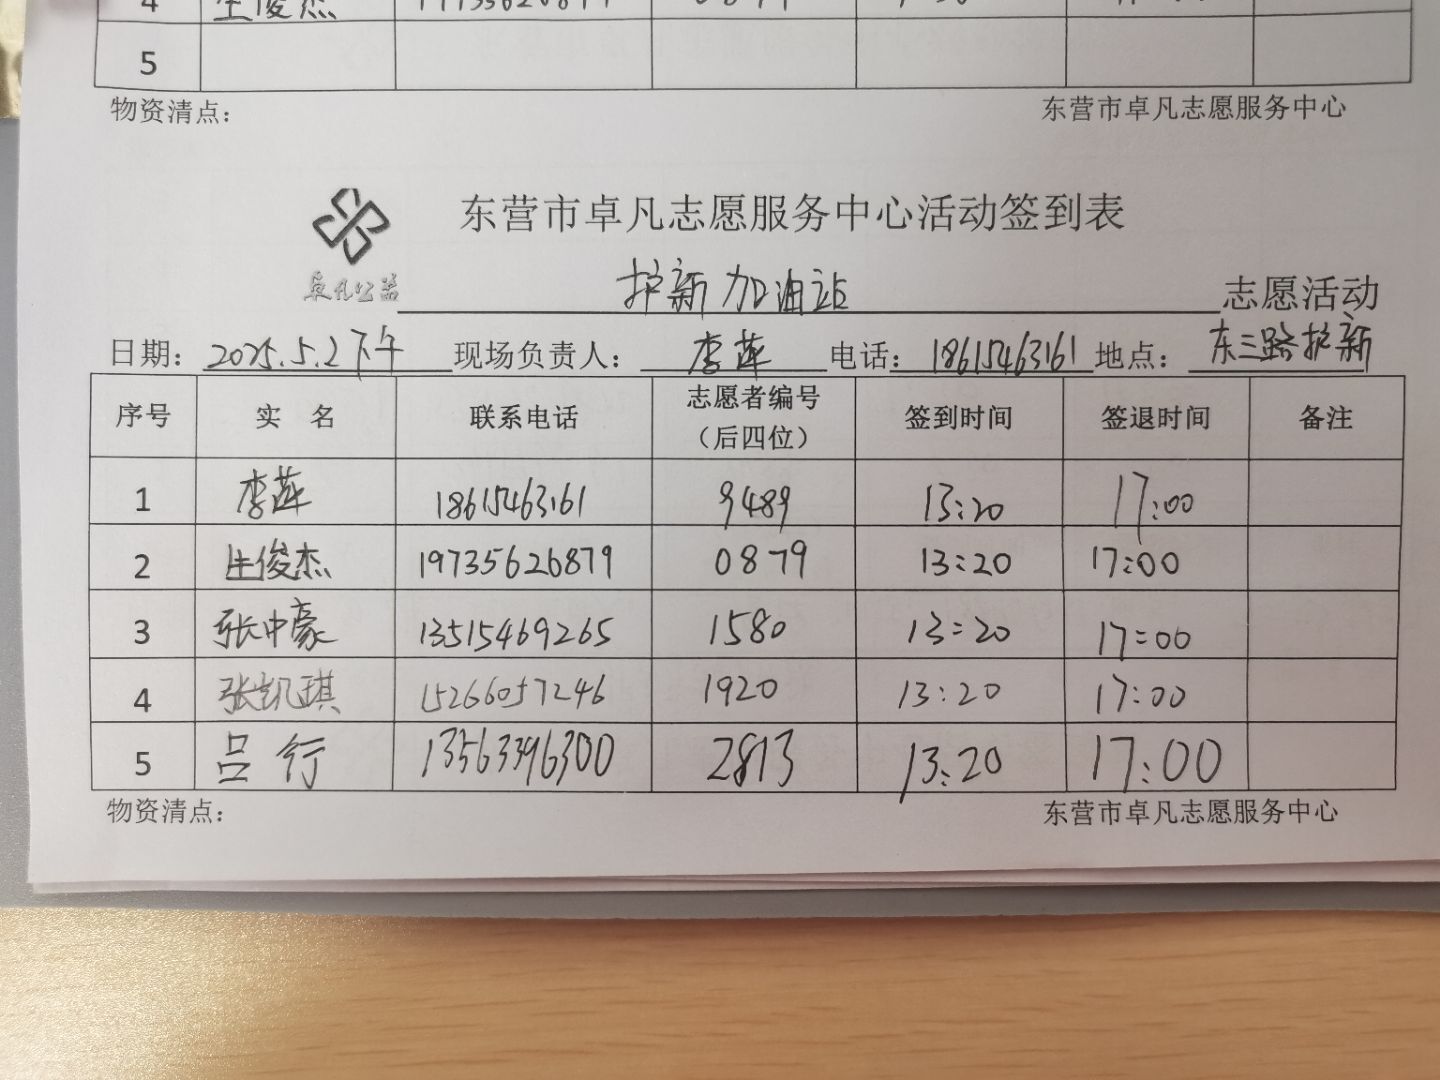 4 生俊杰
5
物资清点： 东营市卓凡志愿服务中心
东营市卓凡志愿服务中心活动签到表
卓凡公益 护新加油站 志愿活动
日期：2025.5.2下午 现场负责人：李莲 电话：18615463161 地点：东三路护新
序号 实 名 联系电话 志愿者编号（后四位） 签到时间 签退时间 备注
1 李莲 18615463161 9489 13:20 17:00
2 生俊杰 19735626879 0879 13:20 17:00
3 张中豪 13515469265 1580 13:20 17:00
4 张凯琪 15266057246 1920 13:20 17:00
5 吕行 13563396300 2813 13:20 17:00
物资清点： 东营市卓凡志愿服务中心